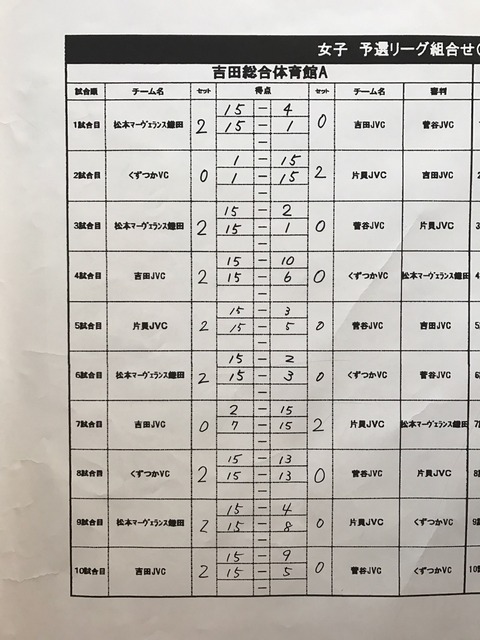 女子 予選リーグ組合せ(
吉田総合体育館A
試合順 チーム名 セット 得点 セット チーム名 審判
1試合目 松本マーヴェランス鎌田 2 15 - 4 0 吉田JVC 菅谷JVC
15 - 1
-
2試合目 くずつかVC 0 1 - 15 2 片貝JVC 吉田JVC
1 - 15
-
3試合目 松本マーヴェランス鎌田 2 15 - 2 0 菅谷JVC 片貝JVC
15 - 1
-
4試合目 吉田JVC 2 15 - 10 0 くずつかVC 松本マーヴェランス鎌田
15 - 6
-
5試合目 片貝JVC 2 15 - 3 0 菅谷JVC 吉田JVC
15 - 5
-
6試合目 松本マーヴェランス鎌田 2 15 - 2 0 くずつかVC 菅谷JVC
15 - 3
-
7試合目 吉田JVC 0 2 - 15 2 片貝JVC 松本マーヴェランス鎌田
7 - 15
-
8試合目 くずつかVC 2 15 - 13 0 菅谷JVC 片貝JVC
15 - 13
-
9試合目 松本マーヴェランス鎌田 2 15 - 4 0 片貝JVC くずつかVC
15 - 8
-
10試合目 吉田JVC 2 15 - 9 0 菅谷JVC くずつかVC
15 - 5
-